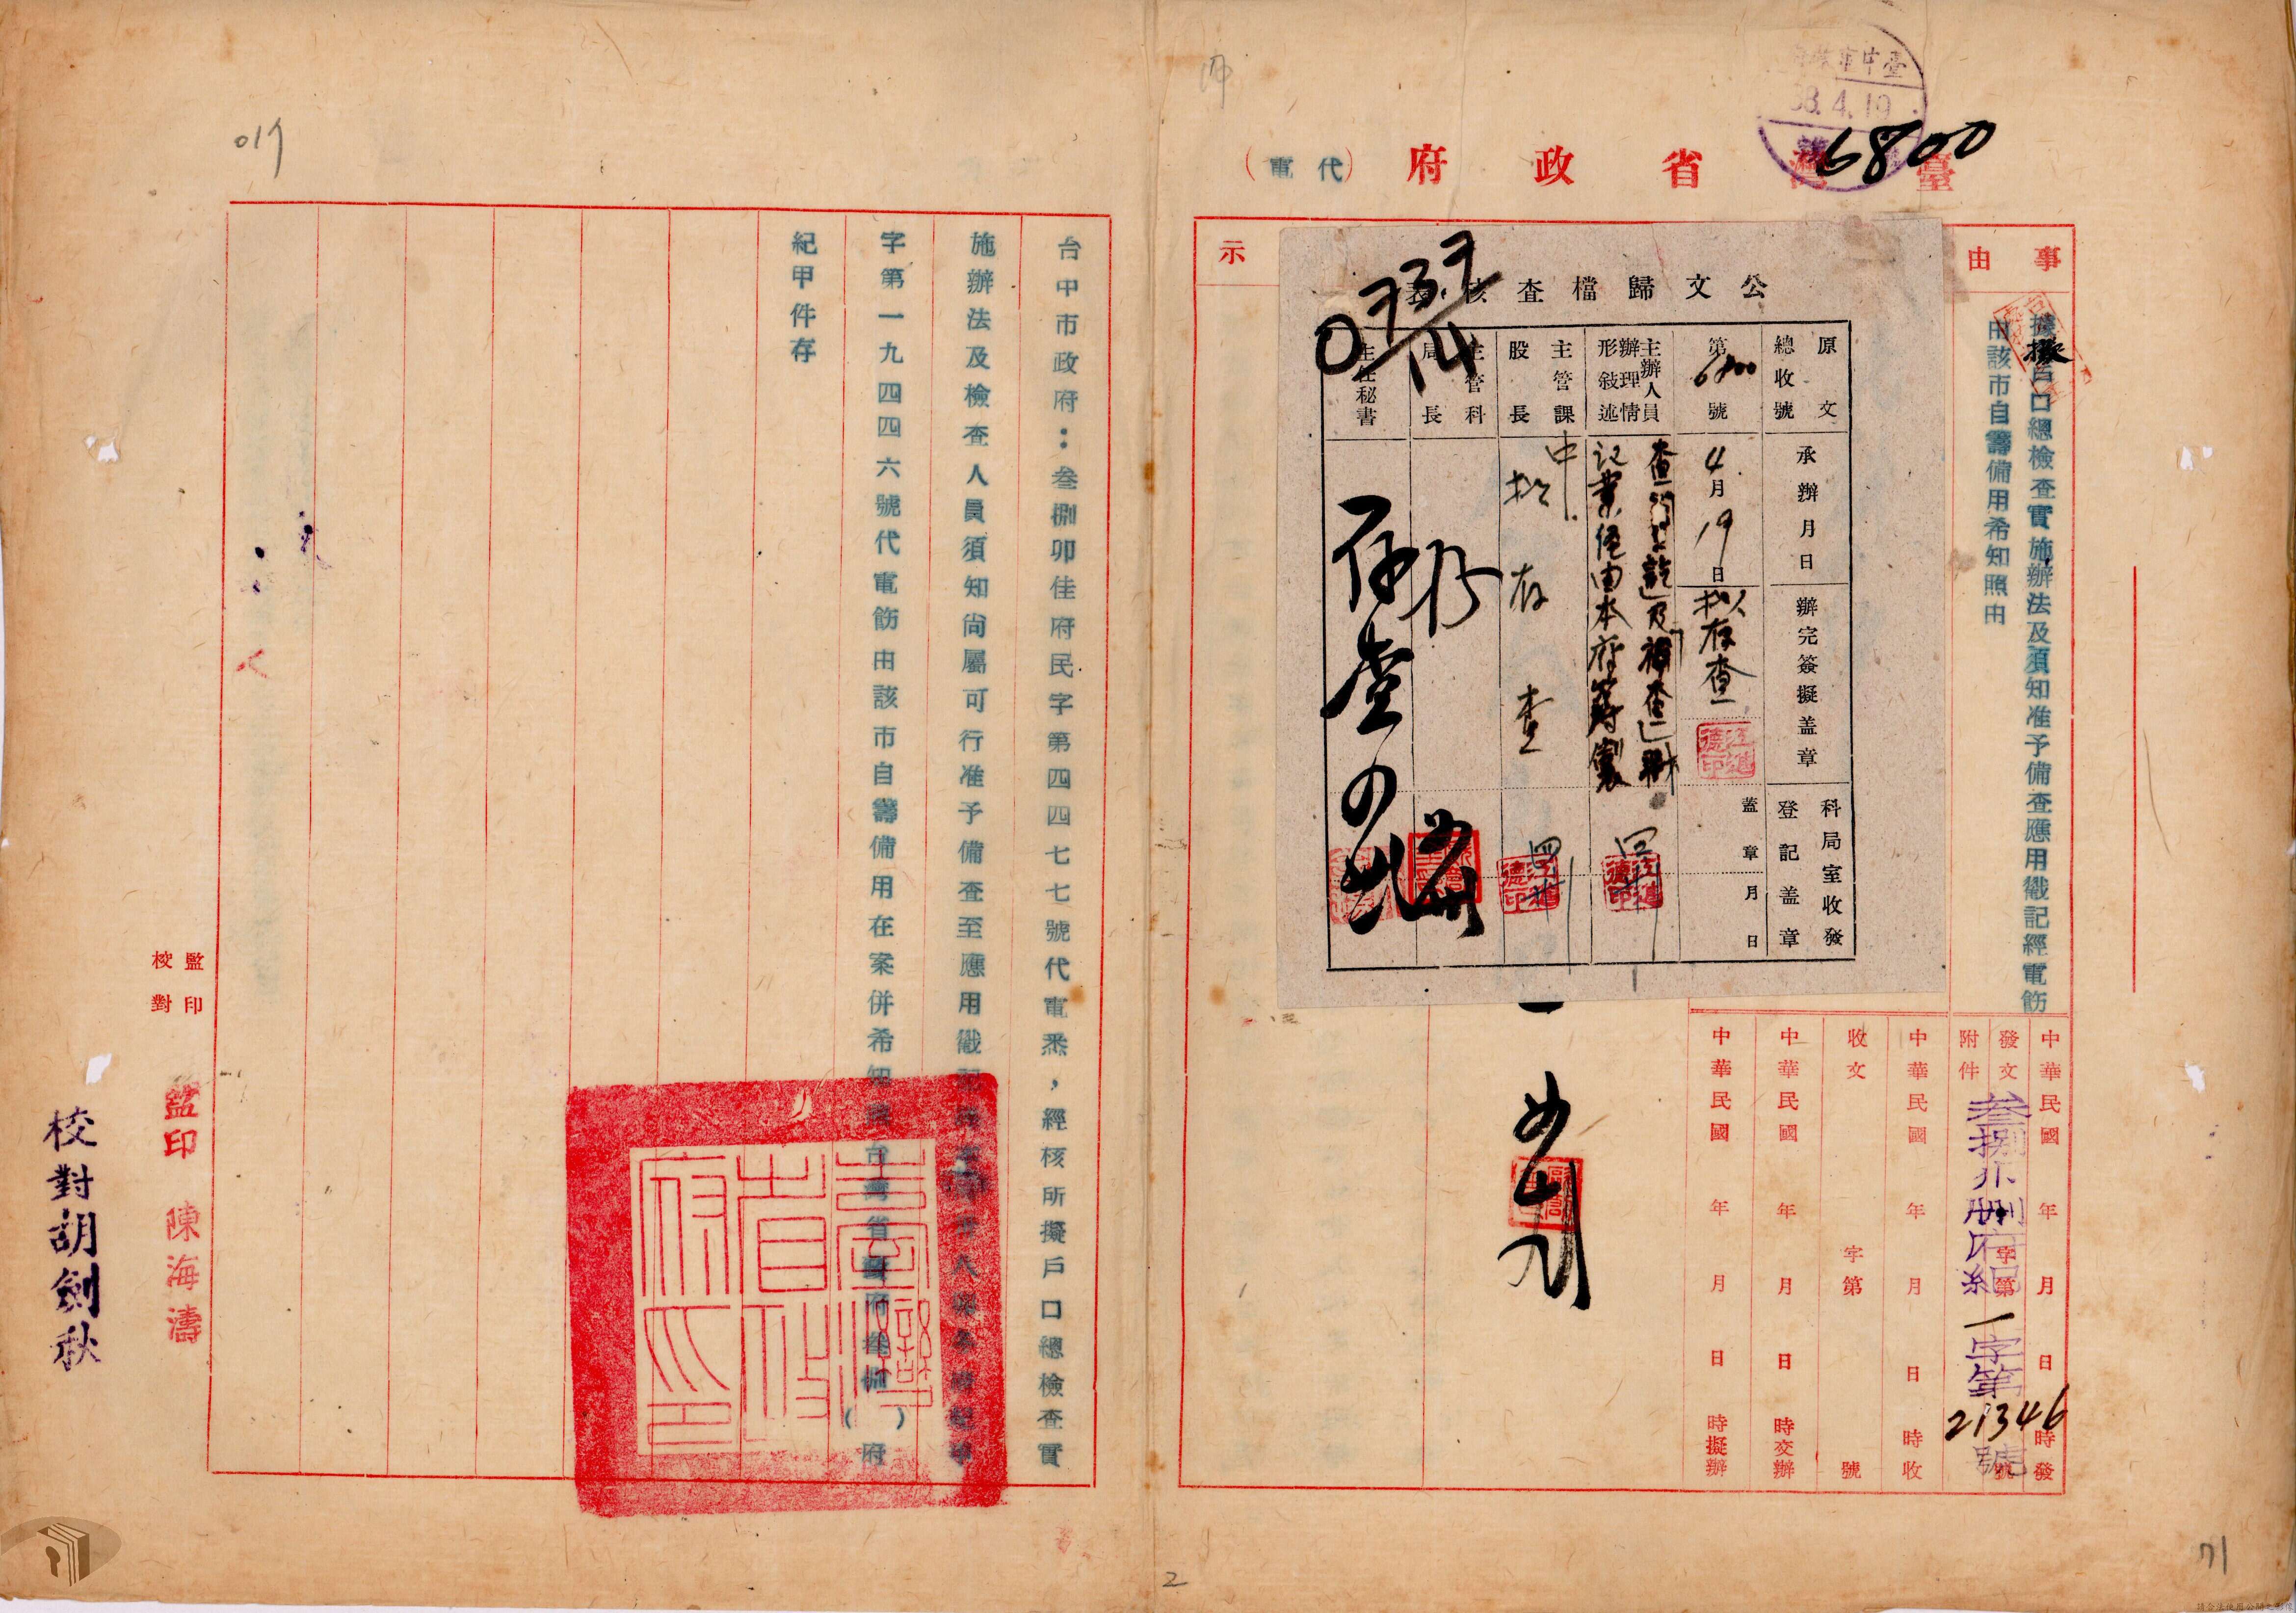 臺中市政府
38.4.19
6800
臺灣省政府(代電)
事由
據擬戶口總檢查實施辦法及須知准予備查應用戳記經電飭
由該市自籌備用希知照由
示
公文歸檔查核表
0737
14
原文總收號
第6800號
承辦月日
4月19日
辦完簽擬蓋章
拟存查
科局室收發登記蓋章
蓋章 月 日
主辦人員辦理情形敍述
查訖及補查冊
記業經由本府籌製
主管課股長
拟存查
主管科局長
主任秘書
存查
中華民國 年 月 日 時發
發文 字第 號
附件
叁捌卯刪府紀一字第21346號
中華民國 年 月 日 時收
收文 字第 號
中華民國 年 月 日 時交辦
中華民國 年 月 日 時擬辦
台中市政府：叁捌卯佳府民字第四四七七號代電悉，經核所擬戶口總檢查實
施辦法及檢查人員須知尚屬可行准予備查至應用戳記
字第一九四四六號代電飭由該市自籌備用在案併希知照台灣省政府叁捌( )府
紀甲件存
臺灣省政府印
監印
校對
監印 陳海濤
校對胡劍秋
71
2